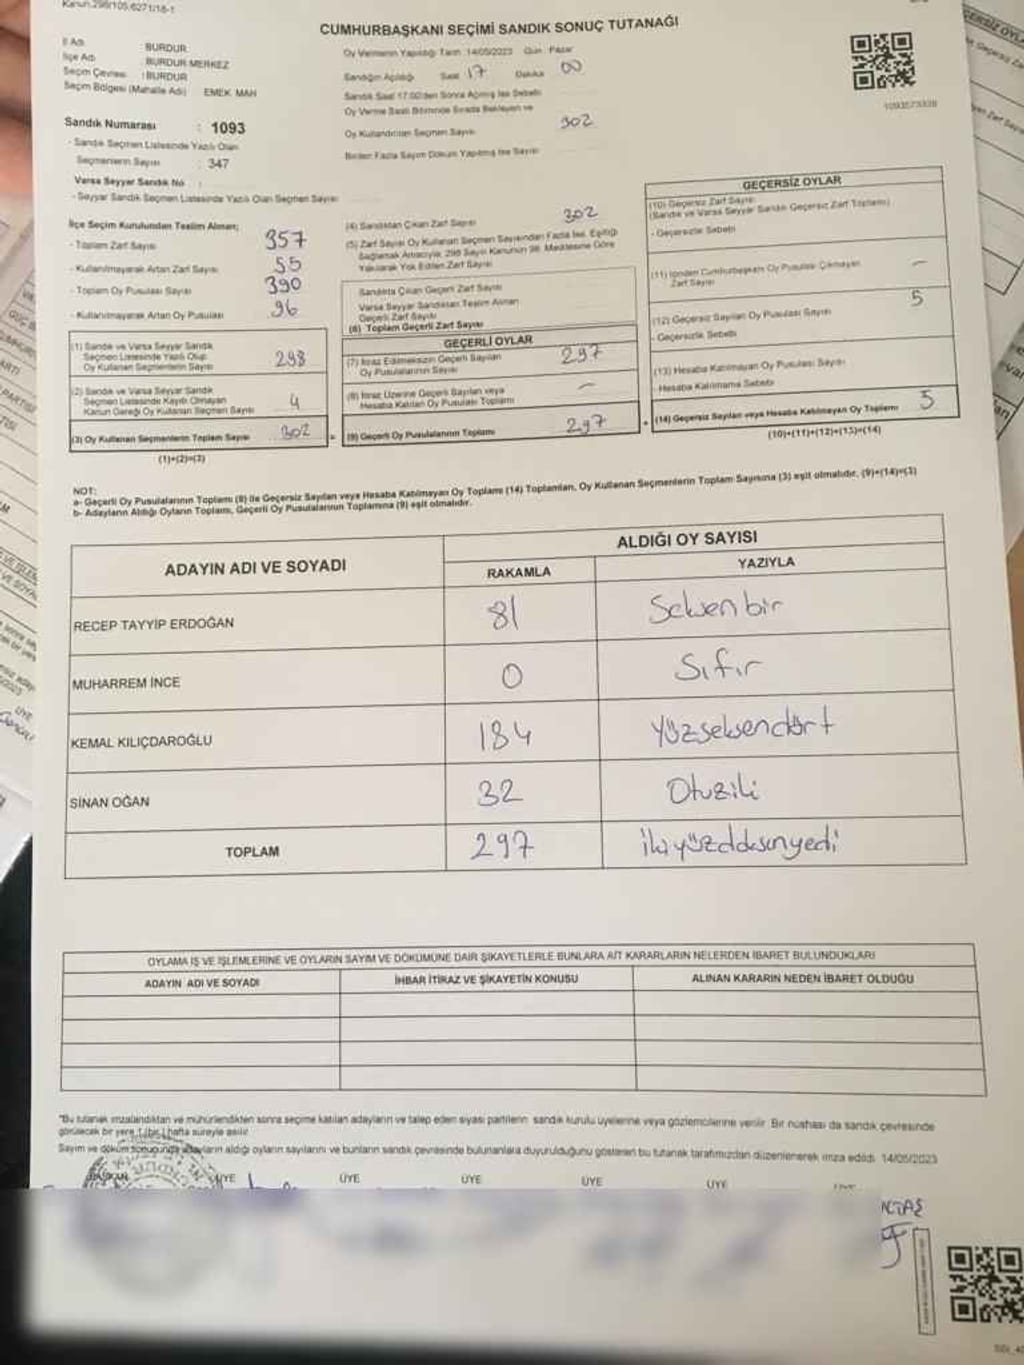 Kanun:298/105,6271/18-1
CUMHURBAŞKANI SEÇİMİ SANDIK SONUÇ TUTANAĞI
İl Adı BURDUR
İlçe Adı BURDUR MERKEZ
Seçim Çevresi : BURDUR
Seçim Bölgesi (Mahalle Adı) EMEK MAH
Sandık Numarası : 1093
- Sandık Seçmen Listesinde Yazılı Olan
Seçmenlerin Sayısı : 347
Varsa Seyyar Sandık No :
- Seyyar Sandık Seçmen Listesinde Yazılı Olan Seçmen Sayısı
Oy Vermenin Yapıldığı Tarih 14/05/2023 Gün Pazar
Sandığın Açıldığı Saat 17 Dakika 00
Sandık Saat 17:00'den Sonra Açılmış İse Sebebi
Oy Verme Saati Bitiminde Sırada Bekleyen ve
Oy Kullandırılan Seçmen Sayısı 302
Birden Fazla Sayım Döküm Yapılmış İse Sayısı
İlçe Seçim Kurulundan Teslim Alınan;
- Toplam Zarf Sayısı 357
- Kullanılmayarak Artan Zarf Sayısı 55
- Toplam Oy Pusulası Sayısı 390
- Kullanılmayarak Artan Oy Pusulası 96
(1) Sandık ve Varsa Seyyar Sandık
Seçmen Listesinde Yazılı Olup
Oy Kullanan Seçmenlerin Sayısı 298
(2) Sandık ve Varsa Seyyar Sandık
Seçmen Listesinde Kayıtlı Olmayan
Kanun Gereği Oy Kullanan Seçmen Sayısı 4
(3) Oy Kullanan Seçmenlerin Toplam Sayısı 302
(1)+(2)=(3)
(4) Sandıktan Çıkan Zarf Sayısı 302
(5) Zarf Sayısı Oy Kullanan Seçmen Sayısından Fazla İse, Eşitliği
Sağlamak Amacıyla, 298 Sayılı Kanunun 98. Maddesine Göre
Yakılarak Yok Edilen Zarf Sayısı
Sandıkta Çıkan Geçerli Zarf Sayısı
Varsa Seyyar Sandıktan Teslim Alınan
Geçerli Zarf Sayısı
(6) Toplam Geçerli Zarf Sayısı
GEÇERLİ OYLAR
(7) İtiraz Edilmeksizin Geçerli Sayılan
Oy Pusulalarının Sayısı 297
(8) İtiraz Üzerine Geçerli Sayılan veya
Hesaba Katılan Oy Pusulası Toplamı –
(9) Geçerli Oy Pusulalarının Toplamı 297
GEÇERSİZ OYLAR
(10) Geçersiz Zarf Sayısı
(Sandık ve Varsa Seyyar Sandık Geçersiz Zarf Toplamı)
- Geçersizlik Sebebi
(11) İçinden Cumhurbaşkanı Oy Pusulası Çıkmayan
Zarf Sayısı –
(12) Geçersiz Sayılan Oy Pusulası Sayısı 5
- Geçersizlik Sebebi
(13) Hesaba Katılmayan Oy Pusulası Sayısı
- Hesaba Katılmama Sebebi
(14) Geçersiz Sayılan veya Hesaba Katılmayan Oy Toplamı 5
(10)+(11)+(12)+(13)=(14)
NOT:
a- Geçerli Oy Pusulalarının Toplamı (9) ile Geçersiz Sayılan veya Hesaba Katılmayan Oy Toplamı (14) Toplamları, Oy Kullanan Seçmenlerin Toplam Sayısına (3) eşit olmalıdır. (9)+(14)=(3)
b- Adayların Aldığı Oyların Toplamı, Geçerli Oy Pusulalarının Toplamına (9) eşit olmalıdır.
ADAYIN ADI VE SOYADI ALDIĞI OY SAYISI
RAKAMLA YAZIYLA
RECEP TAYYİP ERDOĞAN 81 Seksenbir
MUHARREM İNCE 0 Sıfır
KEMAL KILIÇDAROĞLU 184 Yüzseksendört
SİNAN OĞAN 32 Otuziki
TOPLAM 297 ikiyüzdoksanyedi
OYLAMA İŞ VE İŞLEMLERİNE VE OYLARIN SAYIM VE DÖKÜMÜNE DAİR ŞİKAYETLERLE BUNLARA AİT KARARLARIN NELERDEN İBARET BULUNDUKLARI
ADAYIN ADI VE SOYADI İHBAR İTİRAZ VE ŞİKAYETİN KONUSU ALINAN KARARIN NEDEN İBARET OLDUĞU
*Bu tutanak imzalandıktan ve mühürlendikten sonra seçime katılan adayların ve talep eden siyasi partilerin sandık kurulu üyelerine veya gözlemcilerine verilir. Bir nüshası da sandık çevresinde
görülecek bir yere 1 (bir) hafta süreyle asılır.
Sayım ve döküm sonucunda adayların aldığı oyların sayılarını ve bunların sandık çevresinde bulunanlara duyurulduğunu gösteren bu tutanak tarafımızdan düzenlenerek imza edildi. 14/05/2023
BAŞKAN ÜYE ÜYE ÜYE ÜYE ÜYE